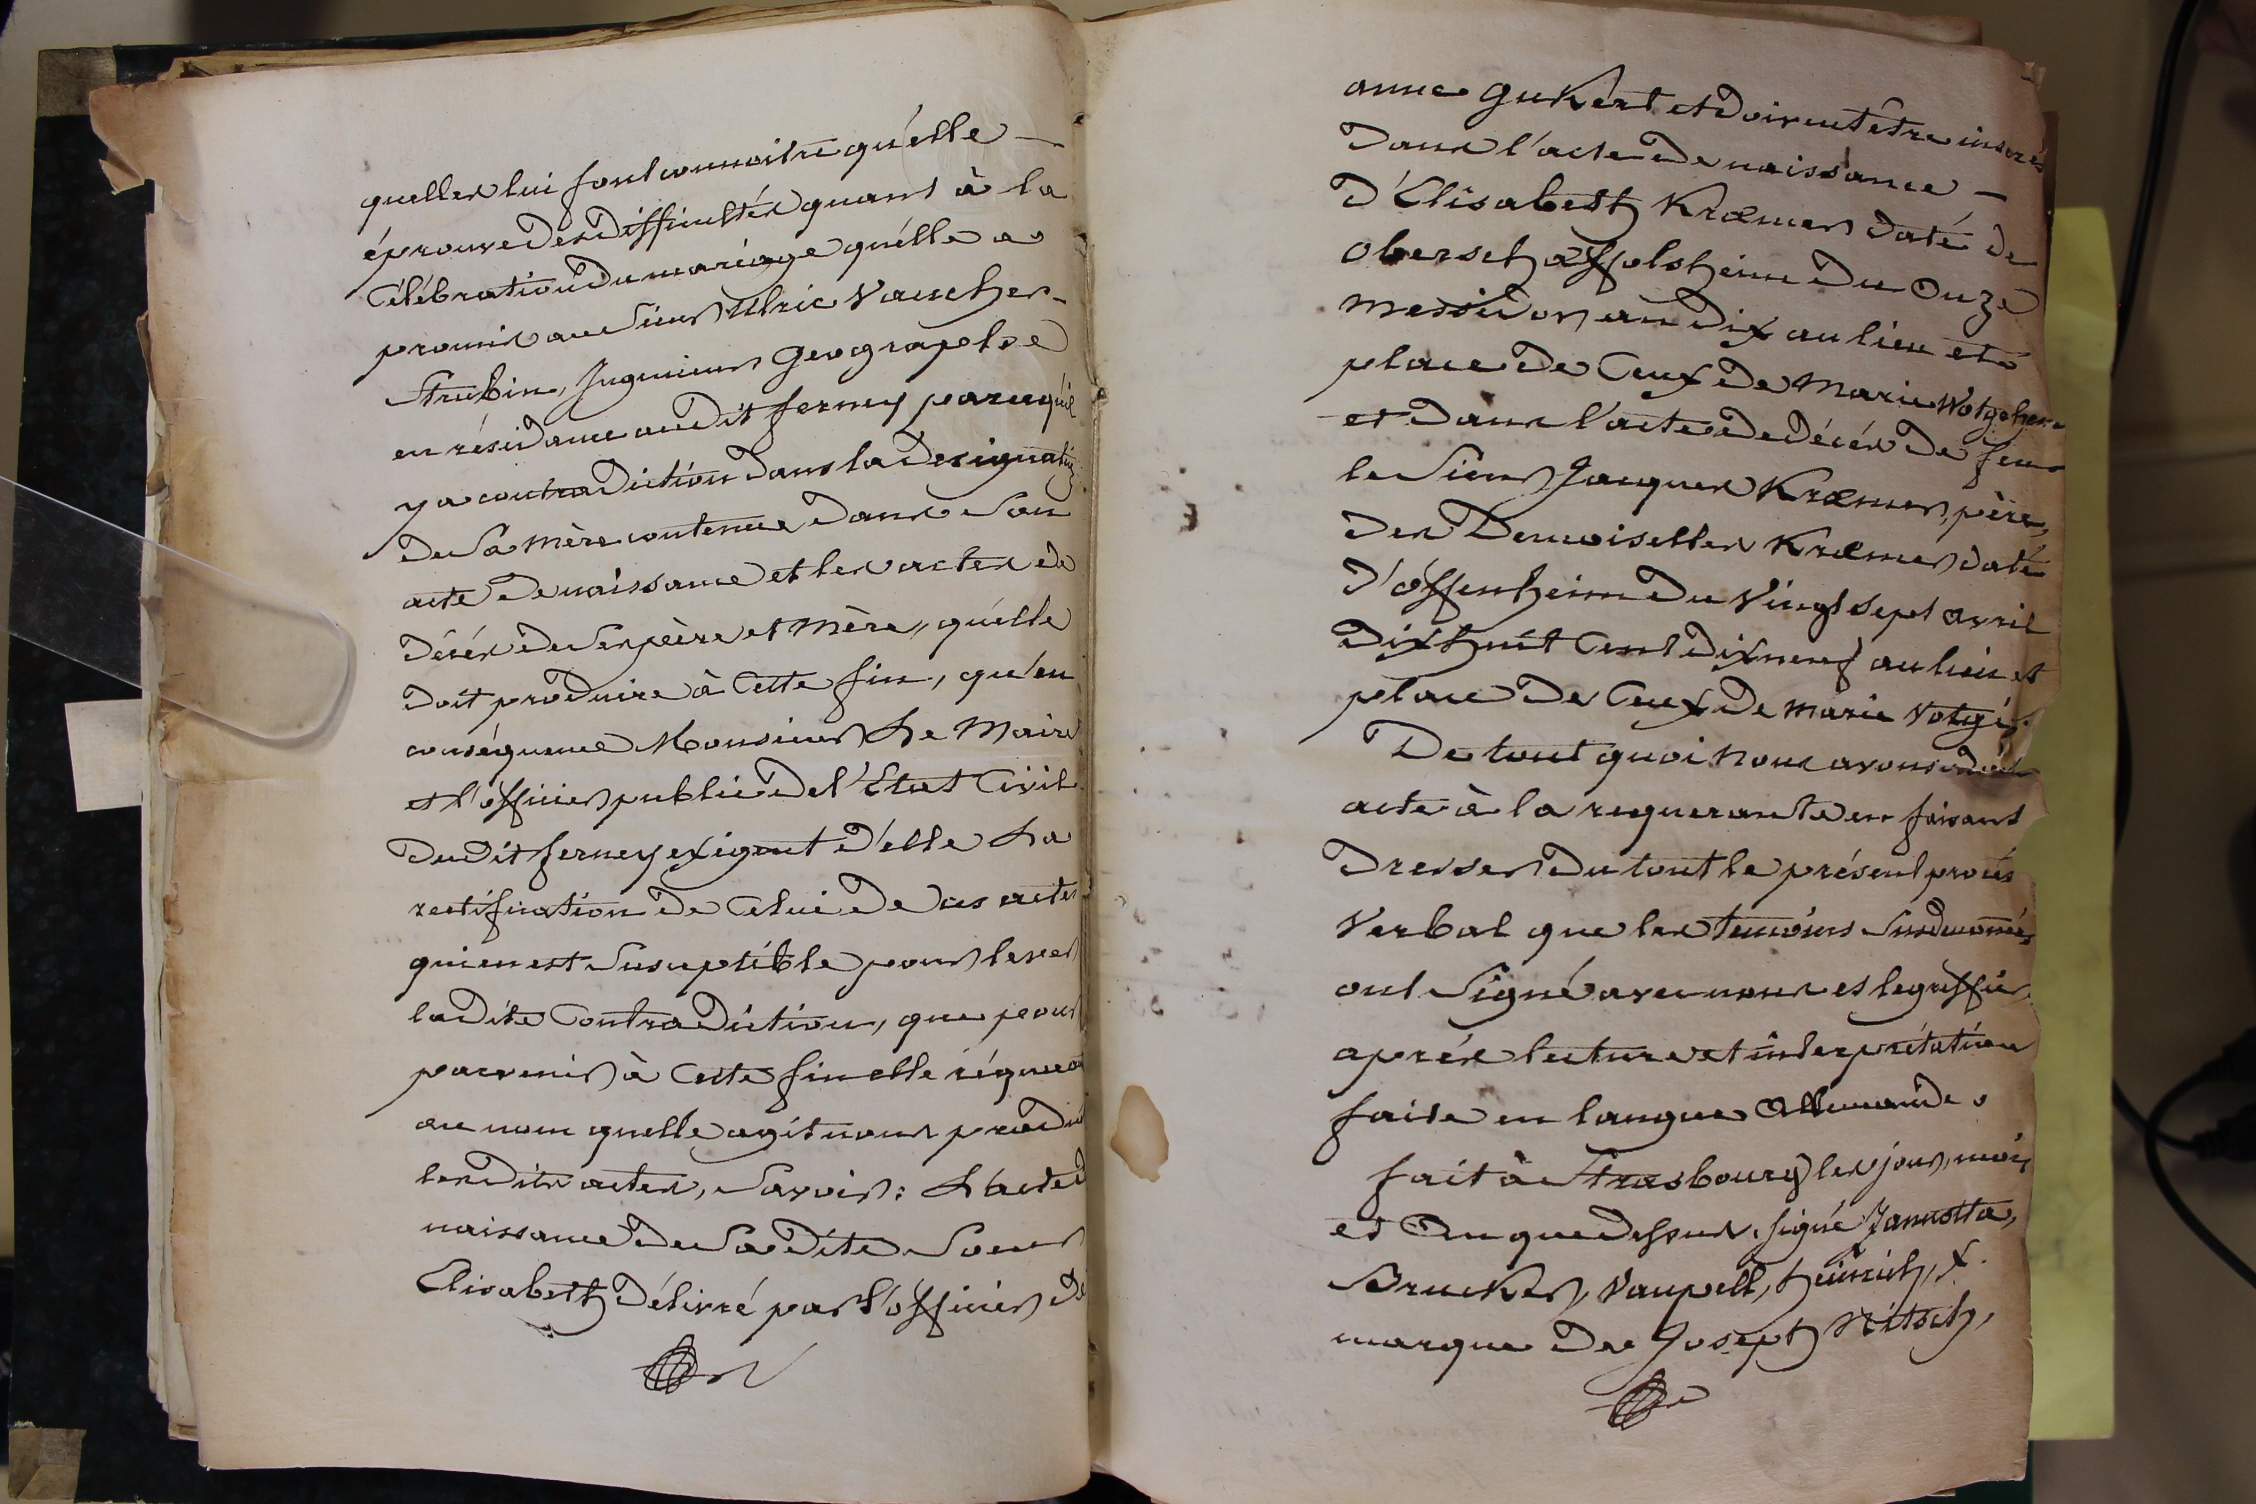 quelles lui font connoitre qu'elle
éprouve des difficultés quant à la
Célébration du mariage qu'elle a
promis au Sieur Ulric Vaucher-
Strubin, Ingenieur Geographe
en résidence audit ferney parcequ'il
y a contradiction dans la designation
de Sa Mère contenue dans Son
acte de naissance et les actes de
décès de Ses père et Mère, qu'elle
doit produire à Cette fin, qu'en
conséquence Monsieur Le Maire
et l'officier public del'Etat Civil
dudit ferney exigent d'elle La
rectification de Celui de ces actes
qui en est Susceptible pour lever
ladite Contradiction, que pour
parvenir à Cette fin elle réquera
au nom quelle agit nous produit
lesdits actes, Savoir: L'acte de
naissance de Sa dite Soeur
Elisabeth délivré par l'officier de
anne Gukert et doivent être inserés
dans l'acte de naissance
d'Elisabeth Kræmer daté de
Oberschæffolsheim du Onze
Messidor an dix au lieu et
place de Ceux de Marie
et dans l'acte de décès de feu
le Sieur Jacques Kræmer, père,
des Demoiselles Kræmer daté
d'offenheim du Vingt Sept avril
dix huit Cent dix neuf au lieu et
place de Ceux de Marie
De tout quoi Nous avons
acte à la requerante en faisant
dresser du tout le présent procès
Verbal que les temoins Susdenomés
ont Signé avec nous et le greffier
après lecture et interprétation
faite en langue Allemande.
fait à Strasbourg les jour, mois
et An que dessus, signé Jannotta,
Brucker, Vaupell, heinrich, X
marque de Joseph Nitsch,